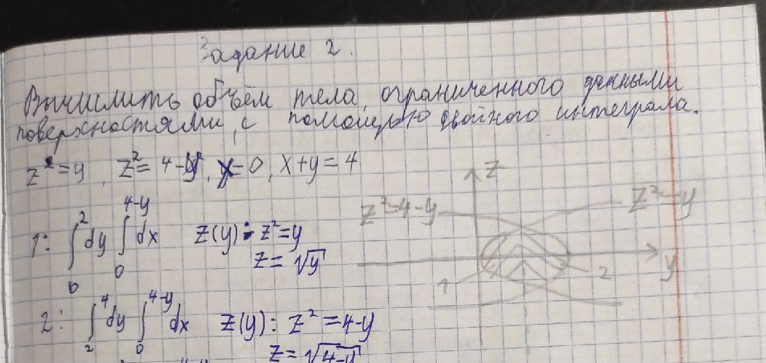 Задание 2.
Вычислить объём тела, ограниченного данными
поверхностями, с помощью двойного интеграла.
z²=y, z²=4-y, x=0, x+y=4
z
z²=4-y
z²=y
y
1
2
1: ∫₀² dy ∫₀^(4-y) dx z(y): z²=y
z=√y
2: ∫₂⁴ dy ∫₀^(4-y) dx z(y): z²=4-y
z=√(4-y)